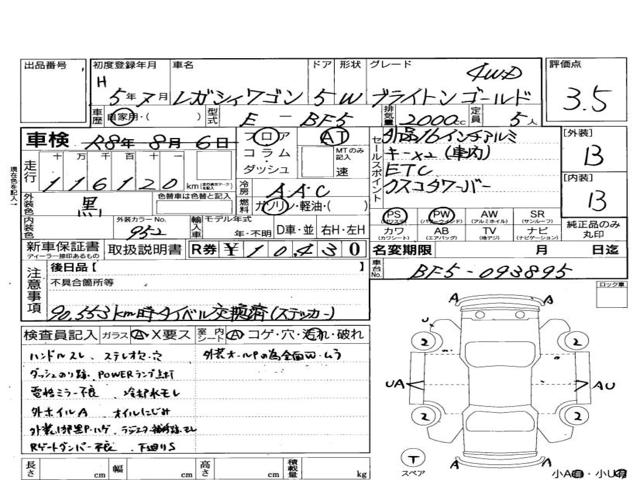 出品番号 初度登録年月 車名 ドア 形状 グレード 評価点
H 5年7月 レガシィワゴン 5 W ブライトンゴールド 4WD 3.5
車歴 自家用・( ) 型式 E-BF5 排気量 2000cc 定員 5人
車検 R8年8月6日 フロア AT
コラム・ダッシュ MTのみ記入 速
セールスポイント
16インチアルミ
キー×2(車内)
ETC
クスコタワーバー
[外装] B
[内装] B
走行 十万千百十一
116120 km
冷房 AAC
外装色 黒 色替車は色替と記入
燃料 ガソリン・軽油・( )
内装色 外装カラーNo. 952
輸入車 モデル年式 年・不明 D車・並 右H・左H
PS PW AW SR
(パワステ) (パワーウィンド) (アルミホイル) (サンルーフ)
カワ AB TV ナビ
(カワシート) (エアバッグ) (地デジ) (ナビゲーション)
純正品のみ丸印
新車保証書 取扱説明書 R券 ¥10430
ディーラー捺印あるもの
名変期限 月 日迄
車台No. BF5-093895
注意事項
後日品[ ]
不具合箇所等
90,553km時タイベル交換済(ステッカー)
ロック車
検査員記入 ガラス A・X要ス 室内シート A・コゲ・穴・汚れ・破れ
ハンドルスレ、ステレオ欠・穴
ダッシュのり跡、POWERランプ点灯
電格ミラー不良 冷却水モレ
外ホイルA オイルにじみ
Rゲートダンパー不良 下回りS
長さ cm 幅 cm 高さ cm 積載量 kg
A
U
2 2
UA AU
2 2
A A
T
スペア
小A・小U